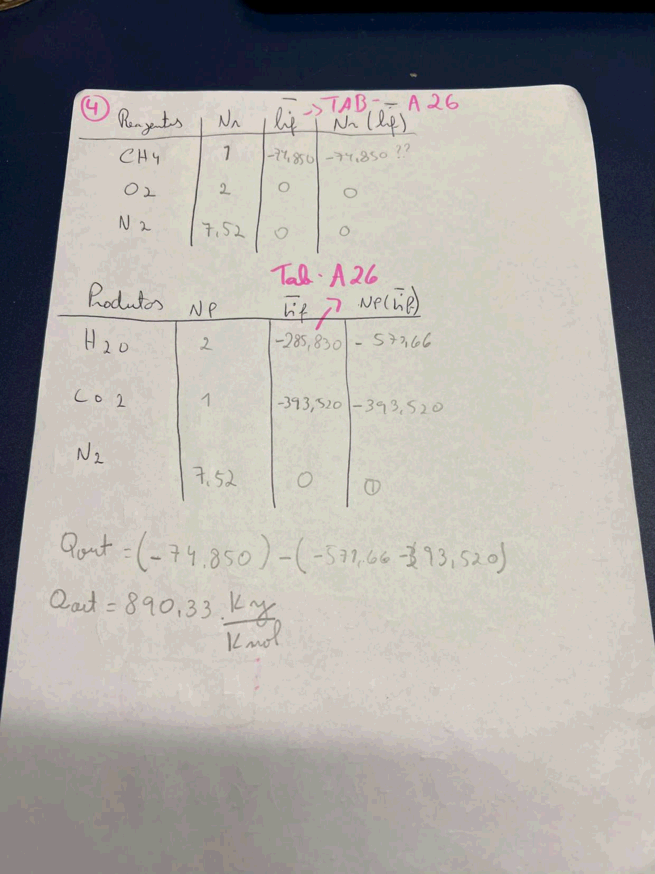 ④ Reagentes Nr h̄f → TAB - A 26 Nr (h̄f)
CH4 1 -74,850 -74,850 ??
O2 2 0 0
N2 7,52 0 0
Tab. A26
Produtos NP h̄f NP(h̄f)
H2O 2 -285,830 - 571,66
CO2 1 -393,520 -393,520
N2
7,52 0 0
Qout = (-74.850) - (-571,66 -393,520)
Qout = 890,33 . KJ
Kmol